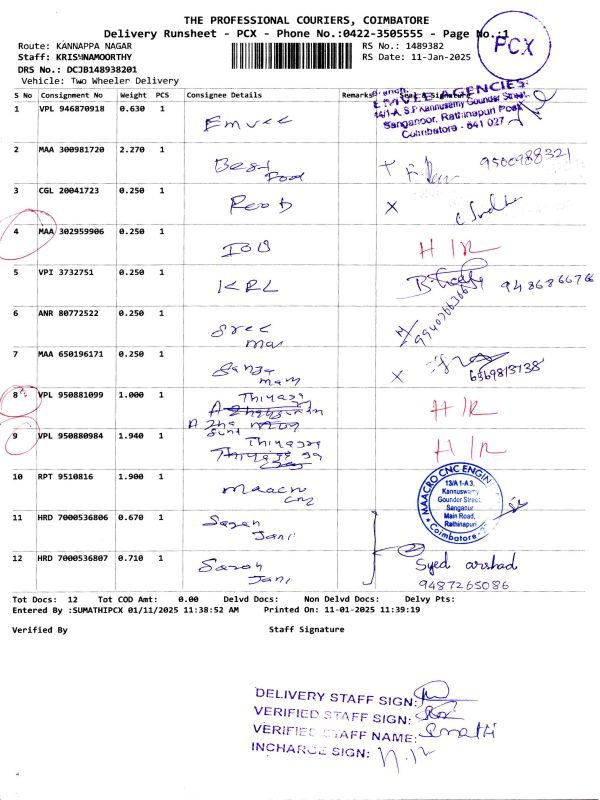 THE PROFESSIONAL COURIERS, COIMBATORE
Delivery Runsheet - PCX - Phone No.:0422-3505555 - Page No.:1
PCX
Route: KANNAPPA NAGAR
RS No.: 1489382
Staff: KRISHNAMOORTHY
RS Date: 11-Jan-2025
DRS No.: DCJB148938201
Vehicle: Two Wheeler Delivery
S No Consignment No Weight PCS Consignee Details Remarks Seal & Signature
EMVEE AGENCIES
44/1-A, S.P Kannusamy Gounder Street,
Sanganoor, Rathinapuri Post
Coimbatore - 641 027
1 VPL 946870918 0.630 1 Emvee
2 MAA 300981720 2.270 1 Best Food 9500988321
3 CGL 20041723 0.250 1
4 MAA 302959906 0.250 1 IOB H/R
5 VPI 3732751 0.250 1 KRL
6 ANR 80772522 0.250 1 Sree
7 MAA 650196171 0.250 1
8 VPL 950881099 1.000 1 Thiyaga H/R
9 VPL 950880984 1.940 1 H/R
10 RPT 9510816 1.900 1 Maacro cnc
MAACRO CNC ENGIN
13/A1-1A3,
Kannuswamy
Gounder Street,
Sanganur
Main Road,
Rathinapuri
Coimbatore-
11 HRD 7000536806 0.670 1 Saran Jani
2
12 HRD 7000536807 0.710 1 Saran Jani Syed arshad
9487265086
Tot Docs: 12 Tot COD Amt: 0.00 Delvd Docs: Non Delvd Docs: Delvy Pts:
Entered By :SUMATHIPCX 01/11/2025 11:38:52 AM Printed On: 11-01-2025 11:39:19
Verified By Staff Signature
DELIVERY STAFF SIGN:
VERIFIED STAFF SIGN:
VERIFIED STAFF NAME:
INCHARGE SIGN: